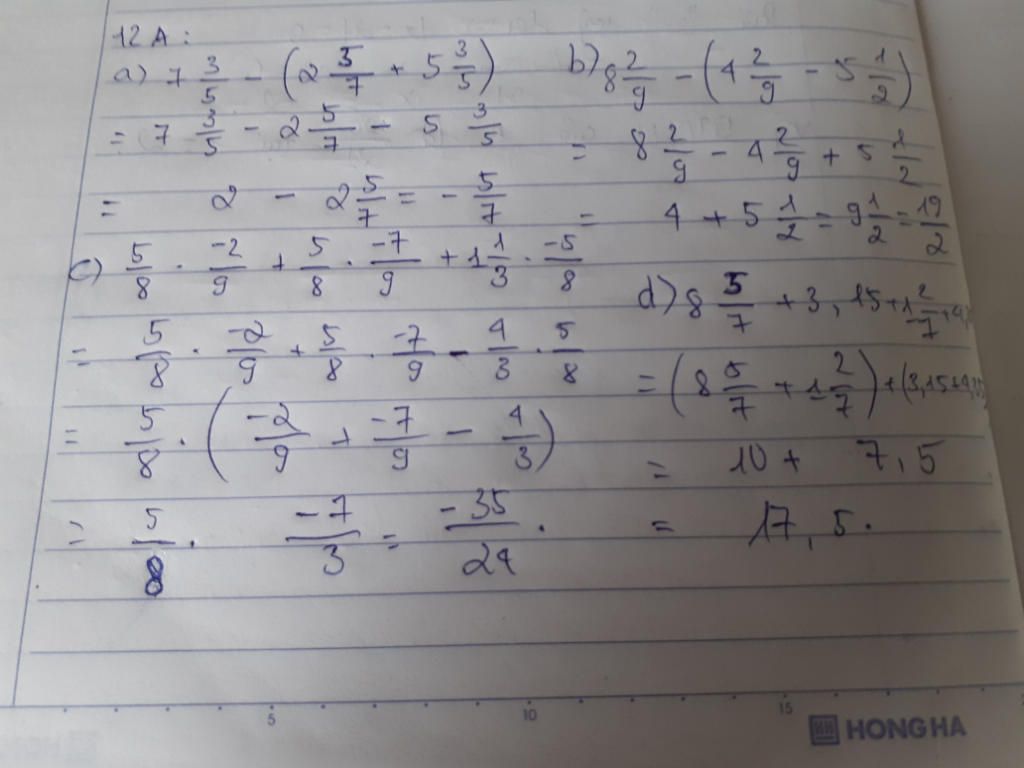 12A:
a) 7 3/5 - (2 5/7 + 5 3/5)
= 7 3/5 - 2 5/7 - 5 3/5
= 2 - 2 5/7 = - 5/7
b) 8 2/9 - (4 2/9 - 5 1/2)
= 8 2/9 - 4 2/9 + 5 1/2
= 4 + 5 1/2 = 9 1/2 = 19/2
c) 5/8 . -2/9 + 5/8 . -7/9 + 1 1/3 . -5/8
= 5/8 . -2/9 + 5/8 . -7/9 - 4/3 . 5/8
= 5/8 . (-2/9 + -7/9 - 4/3)
= 5/8 . -7/3 = -35/24 .
d) 8 5/7 + 3,15 + 1 2/7 +
= (8 5/7 + 1 2/7) + (3,15 +
= 10 + 7,5
= 17,5.
5 10 15
HONG HA